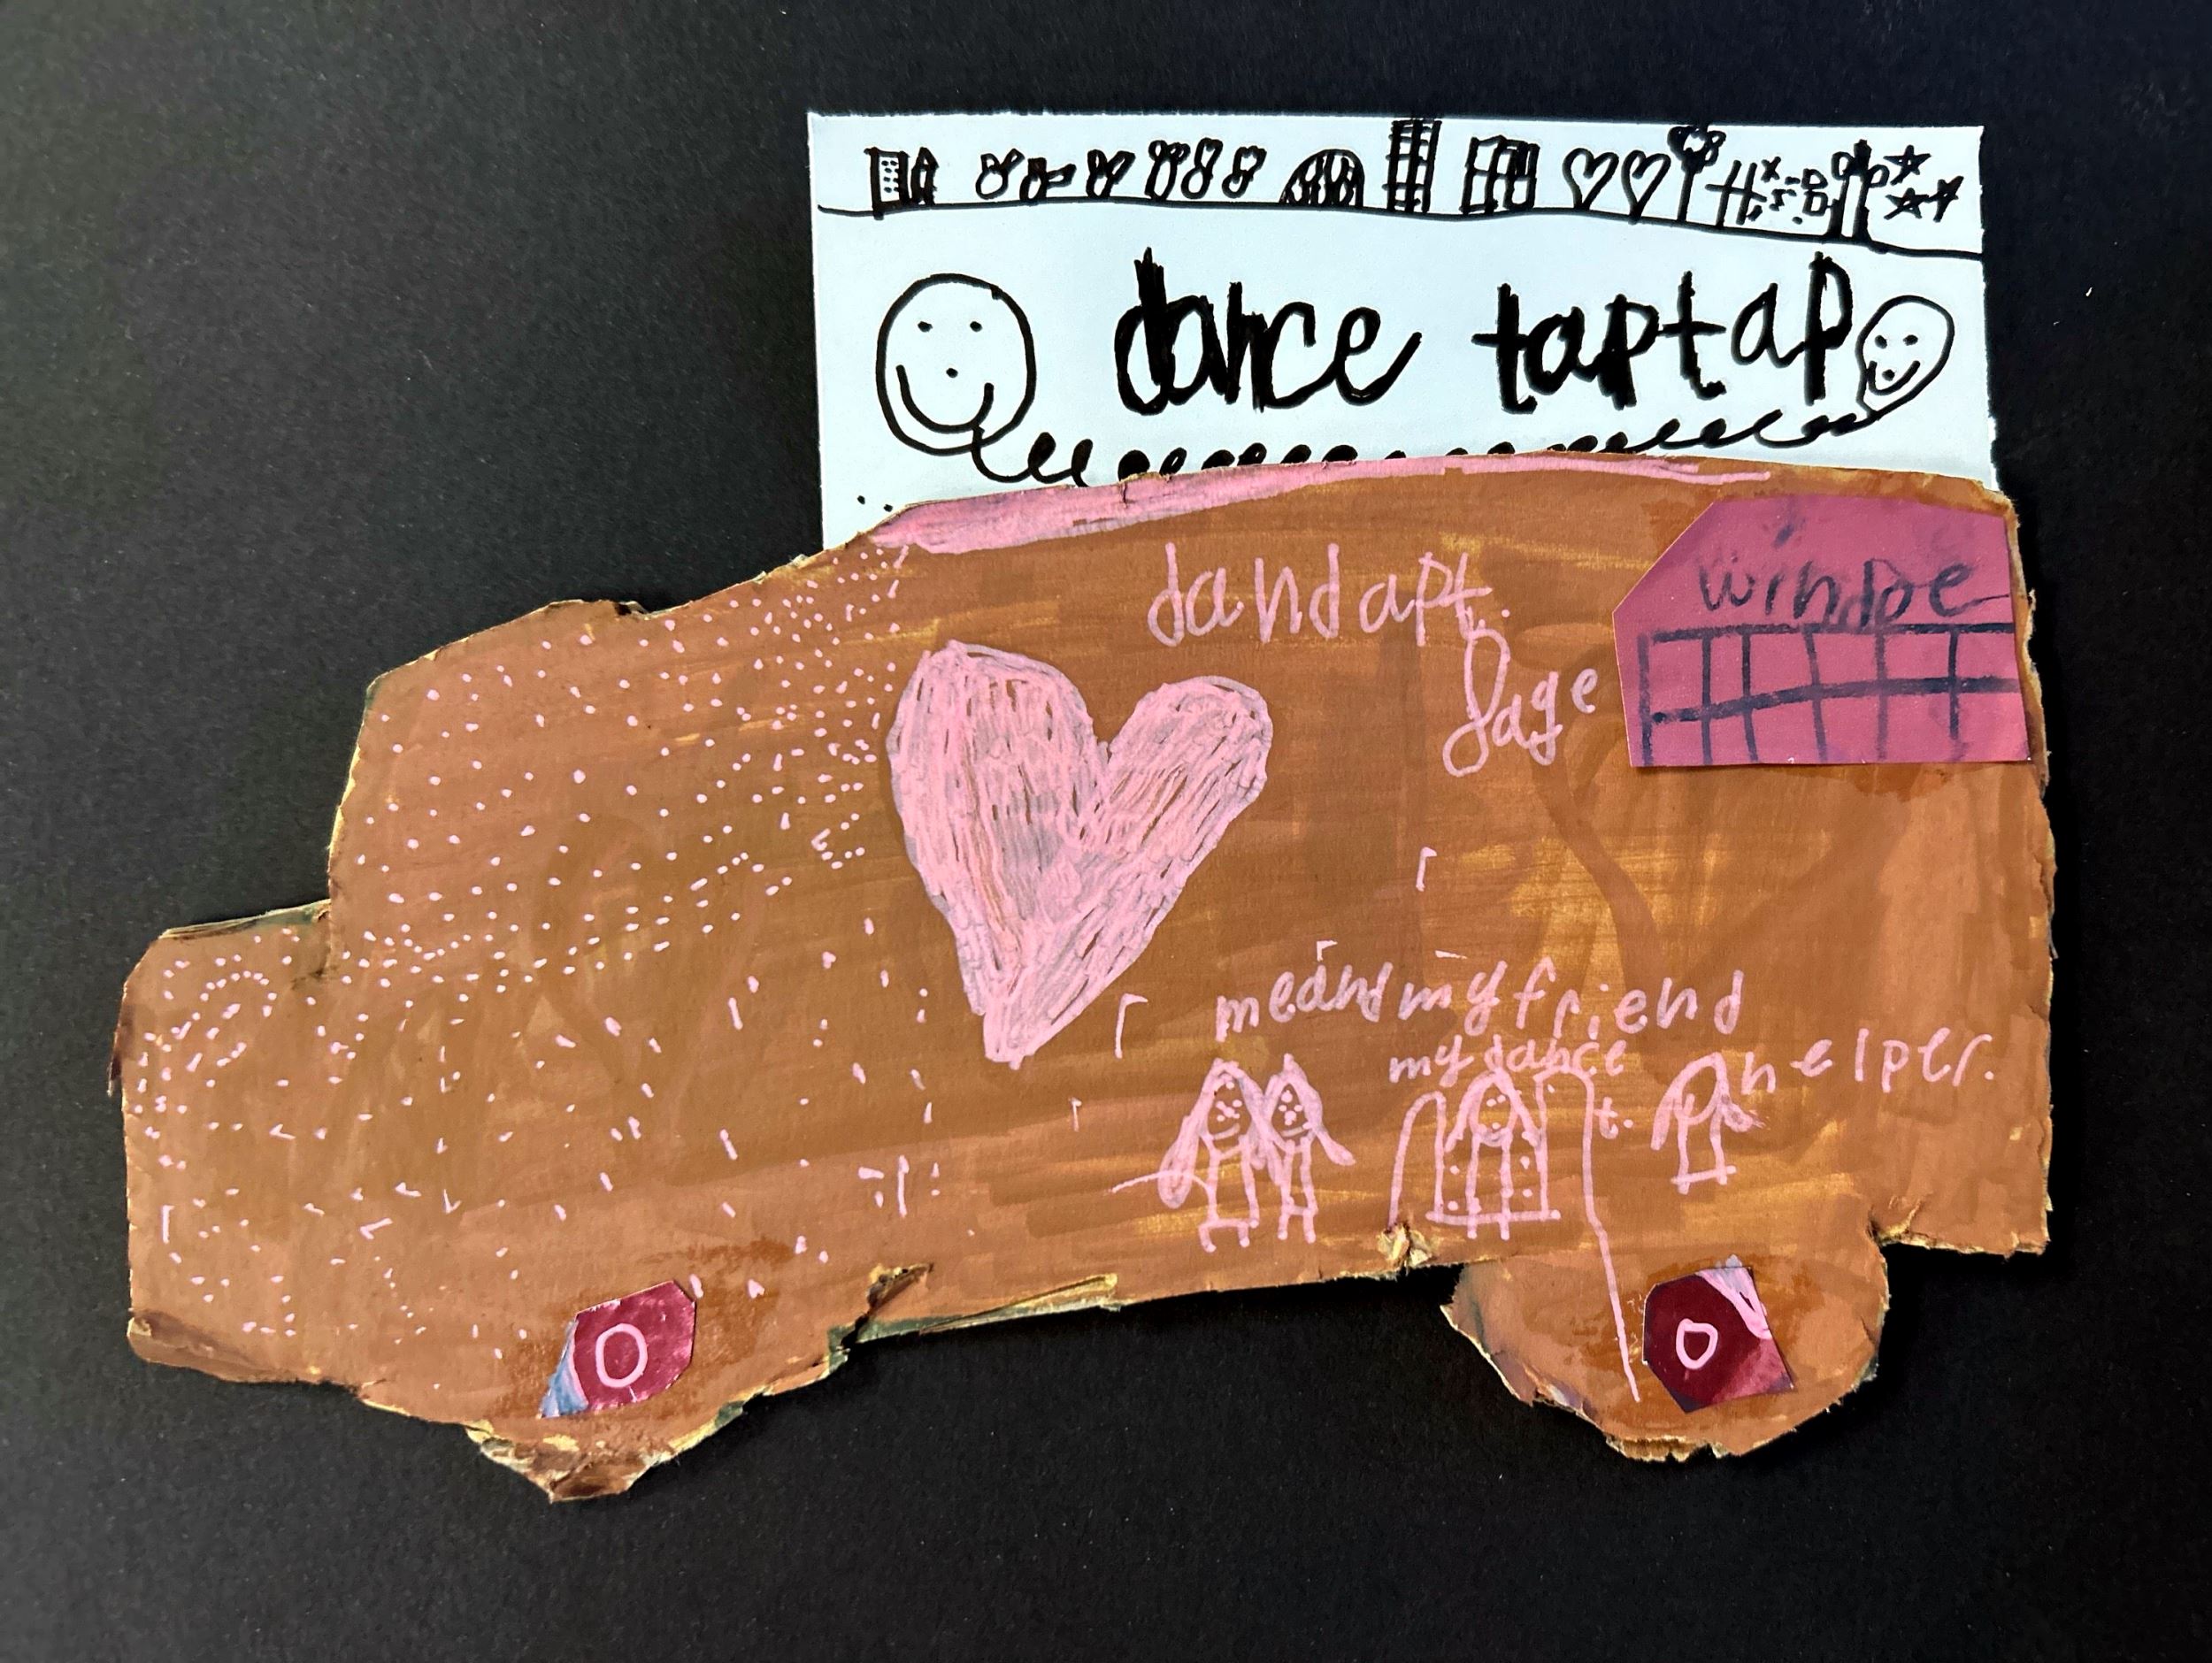 dance taptap
dandapt.
Page
windoe
meandmyfriend
my dance t.
helper.